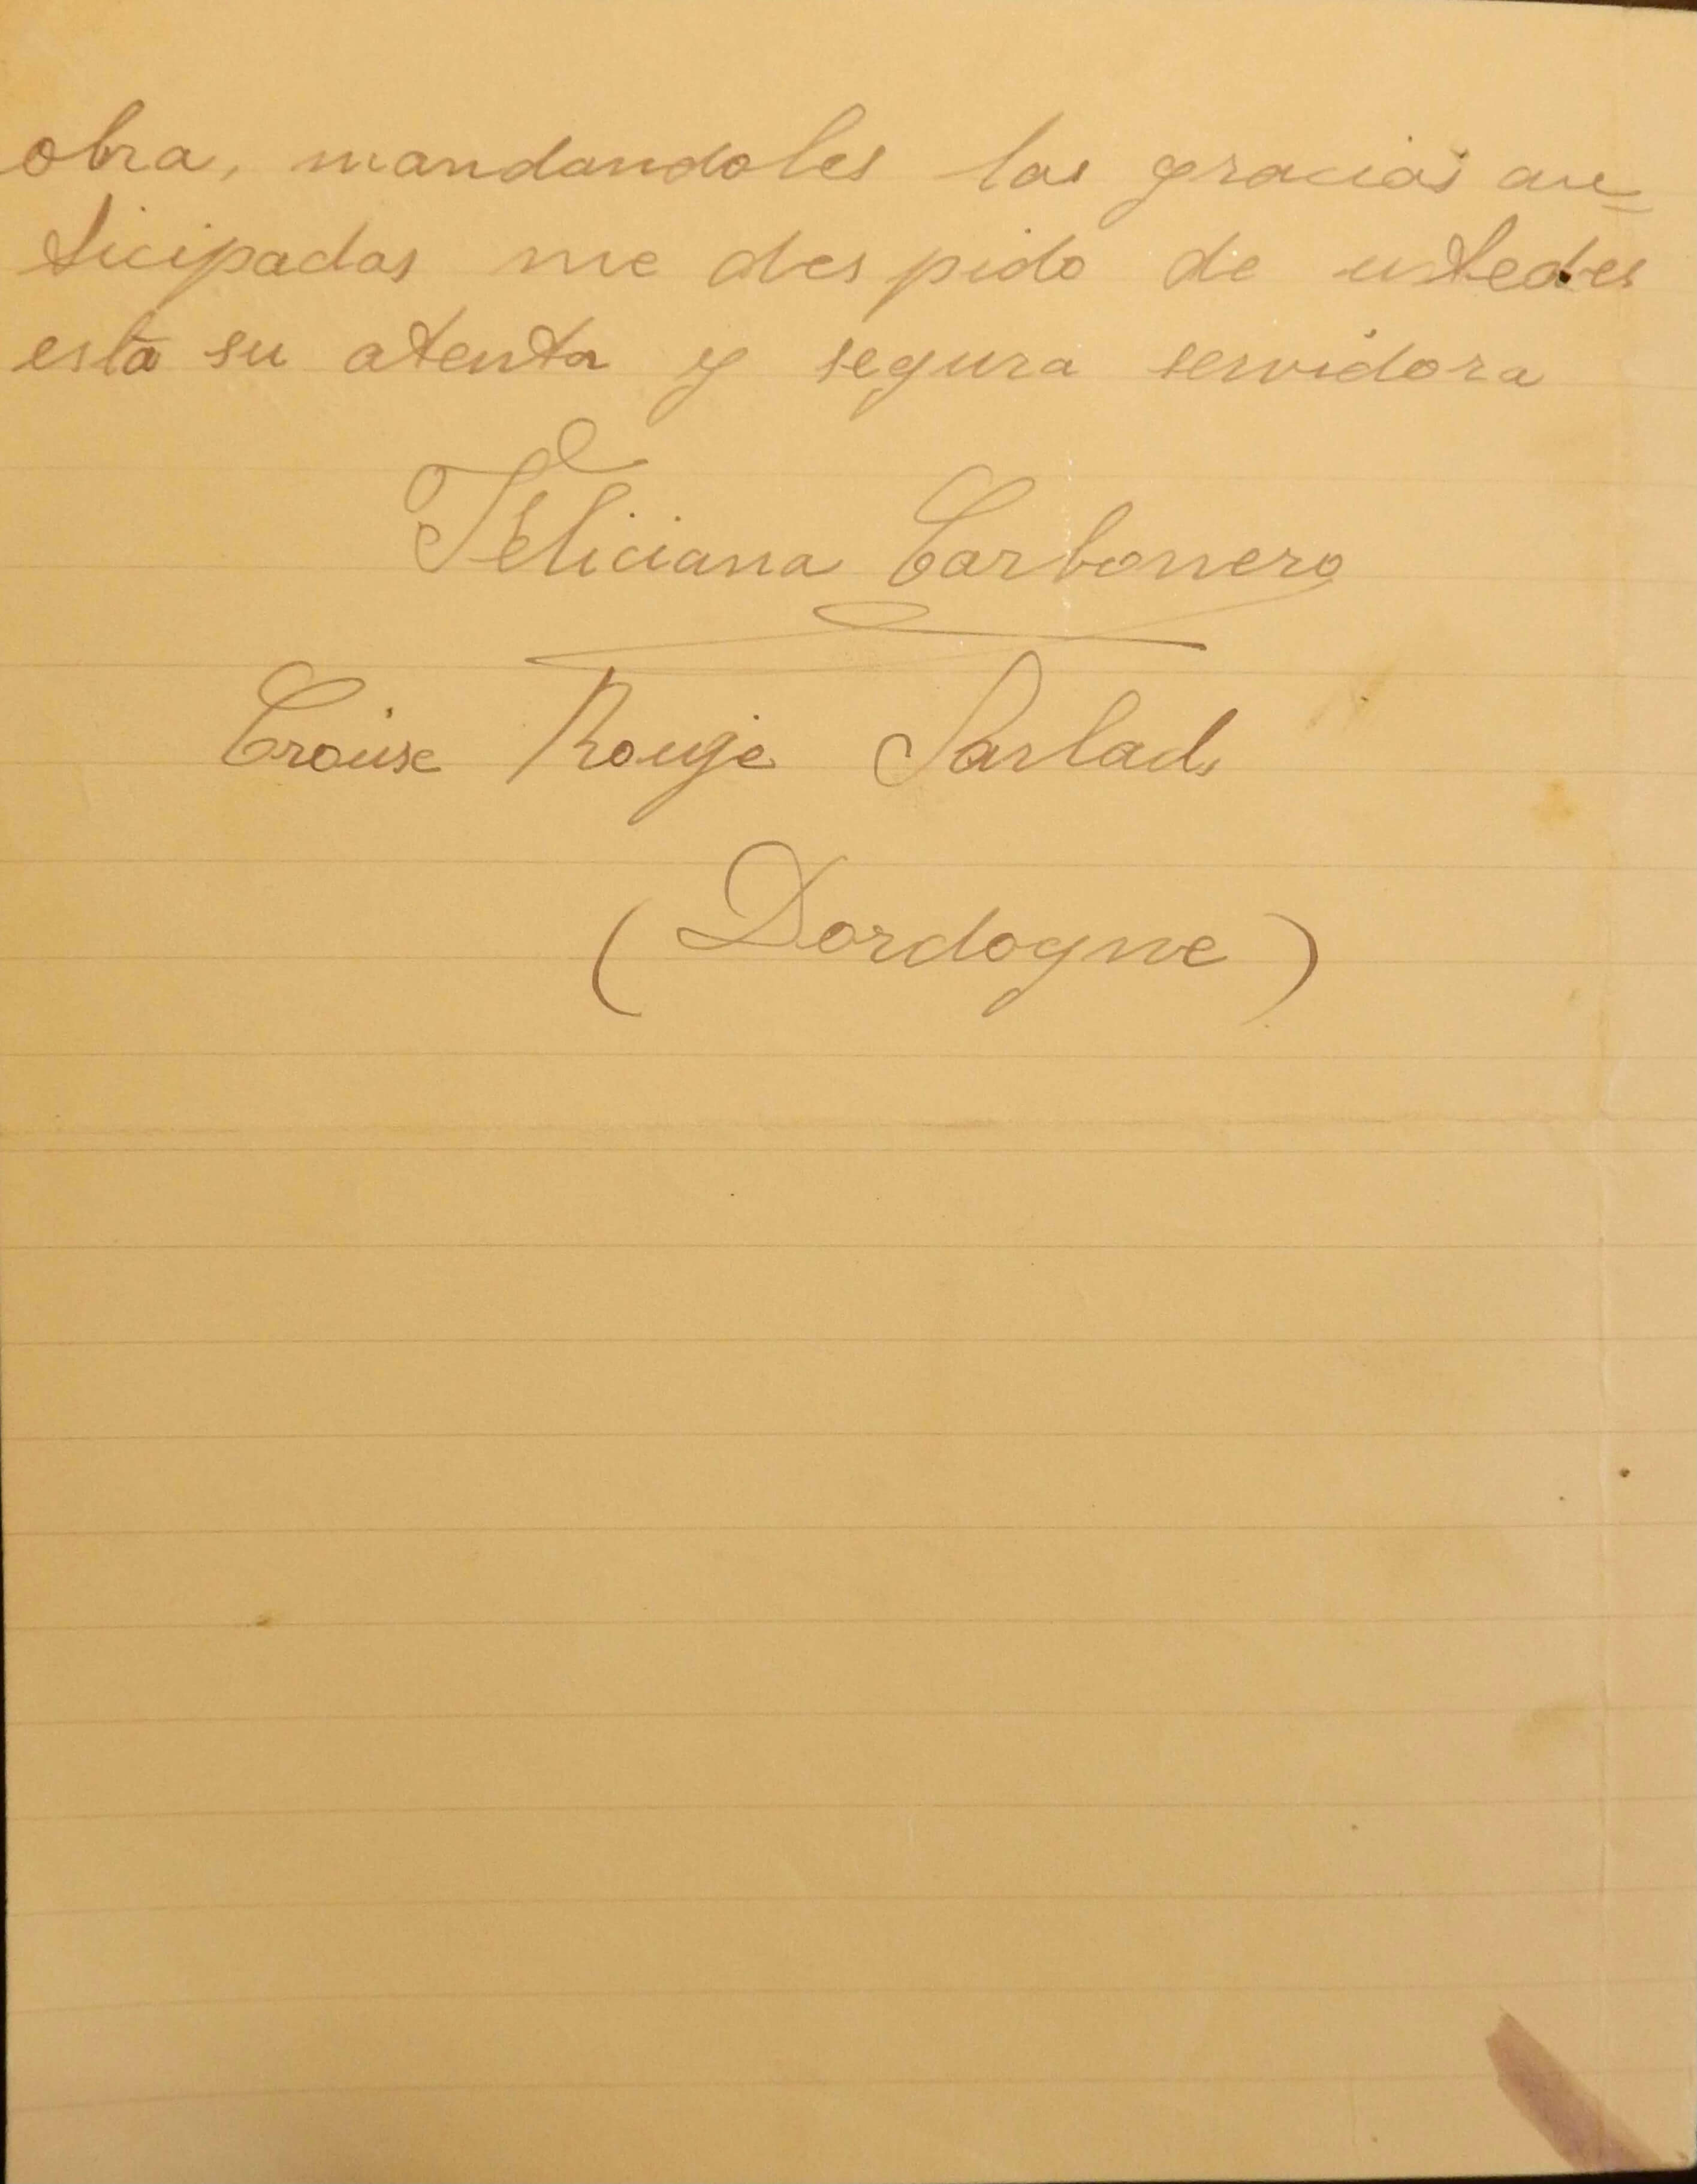 obra, mandandoles las gracias an-
ticipadas me des pido de ustedes
esta su atenta y segura servidora
Feliciana Carbonero
Croixe Rouje Sarlad
(Dordogne)